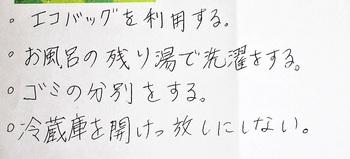 ○ エコバッグを利用する。
○ お風呂の残り湯で洗濯をする。
○ ゴミの分別をする。
○ 冷蔵庫を開けっ放しにしない。